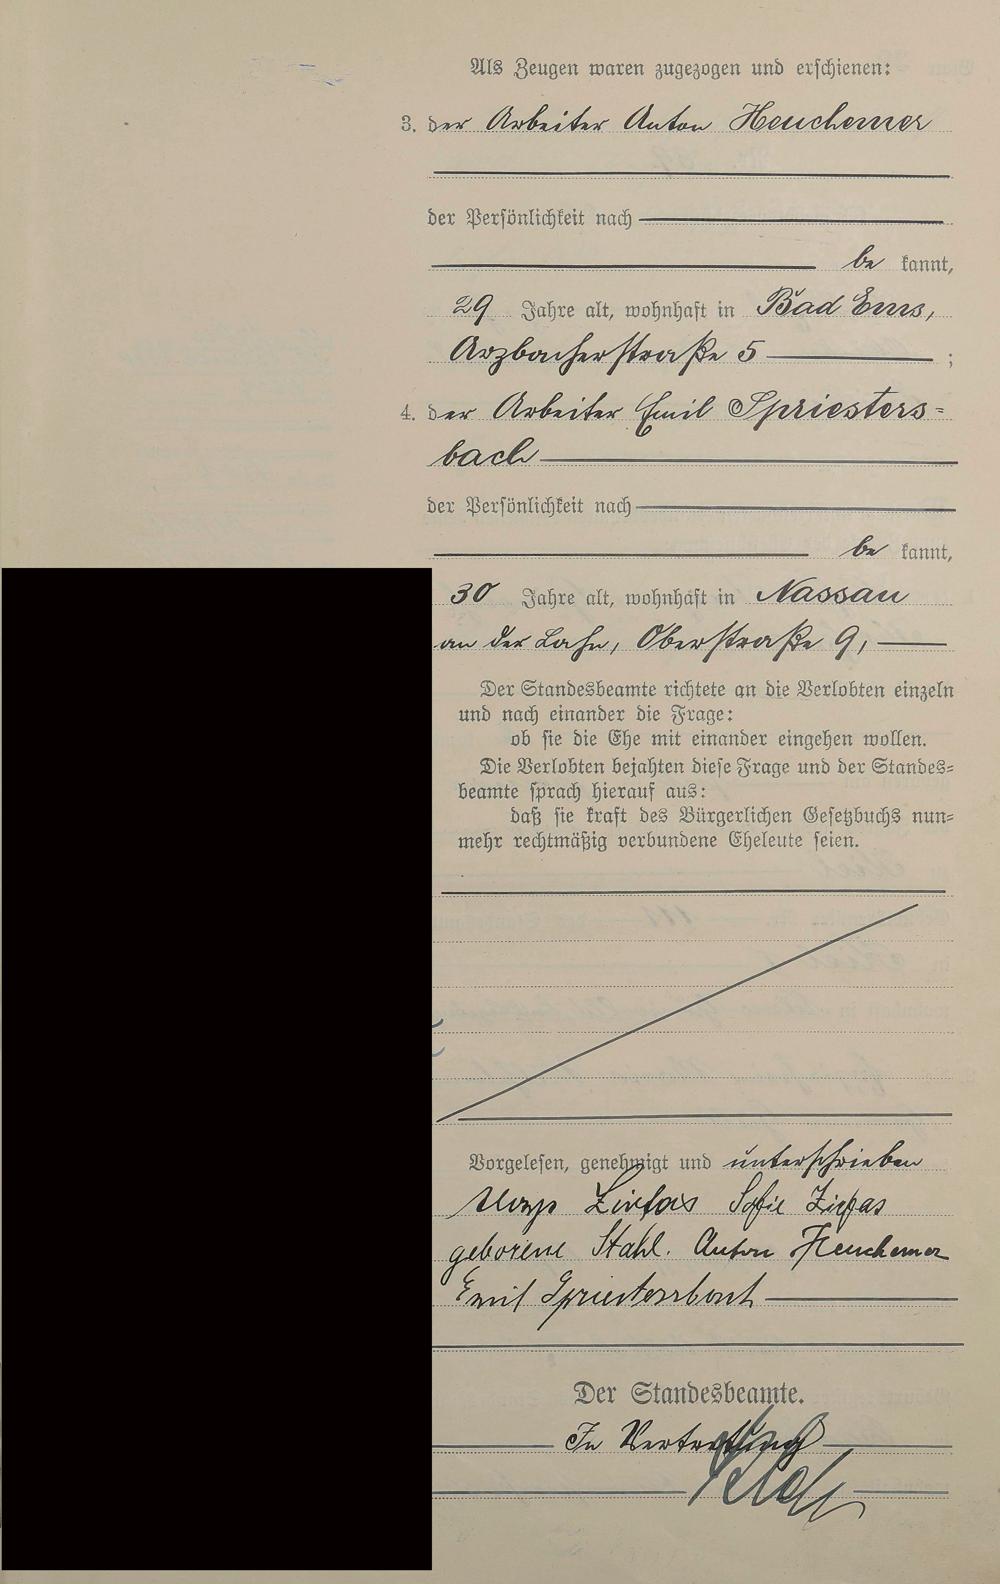 Als Zeugen waren zugezogen und erschienen:
3. der Arbeiter Anton Heuchemer
der Persönlichkeit nach
be kannt,
29 Jahre alt, wohnhaft in Bad Ems,
Arzbacherstraße 5 ;
4. der Arbeiter Emil Spriesters-
bach
der Persönlichkeit nach
be kannt,
30 Jahre alt, wohnhaft in Nassau
an der Lahn, Oberstraße 9,
Der Standesbeamte richtete an die Verlobten einzeln
und nach einander die Frage:
ob sie die Ehe mit einander eingehen wollen.
Die Verlobten bejahten diese Frage und der Standes-
beamte sprach hierauf aus:
daß sie kraft des Bürgerlichen Gesetzbuchs nun-
mehr rechtmäßig verbundene Eheleute seien.
Vorgelesen, genehmigt und unterschrieben
Sofie
geborene Stahl. Anton Heuchemer
Emil Spriestersbach
Der Standesbeamte.
In Vertretung